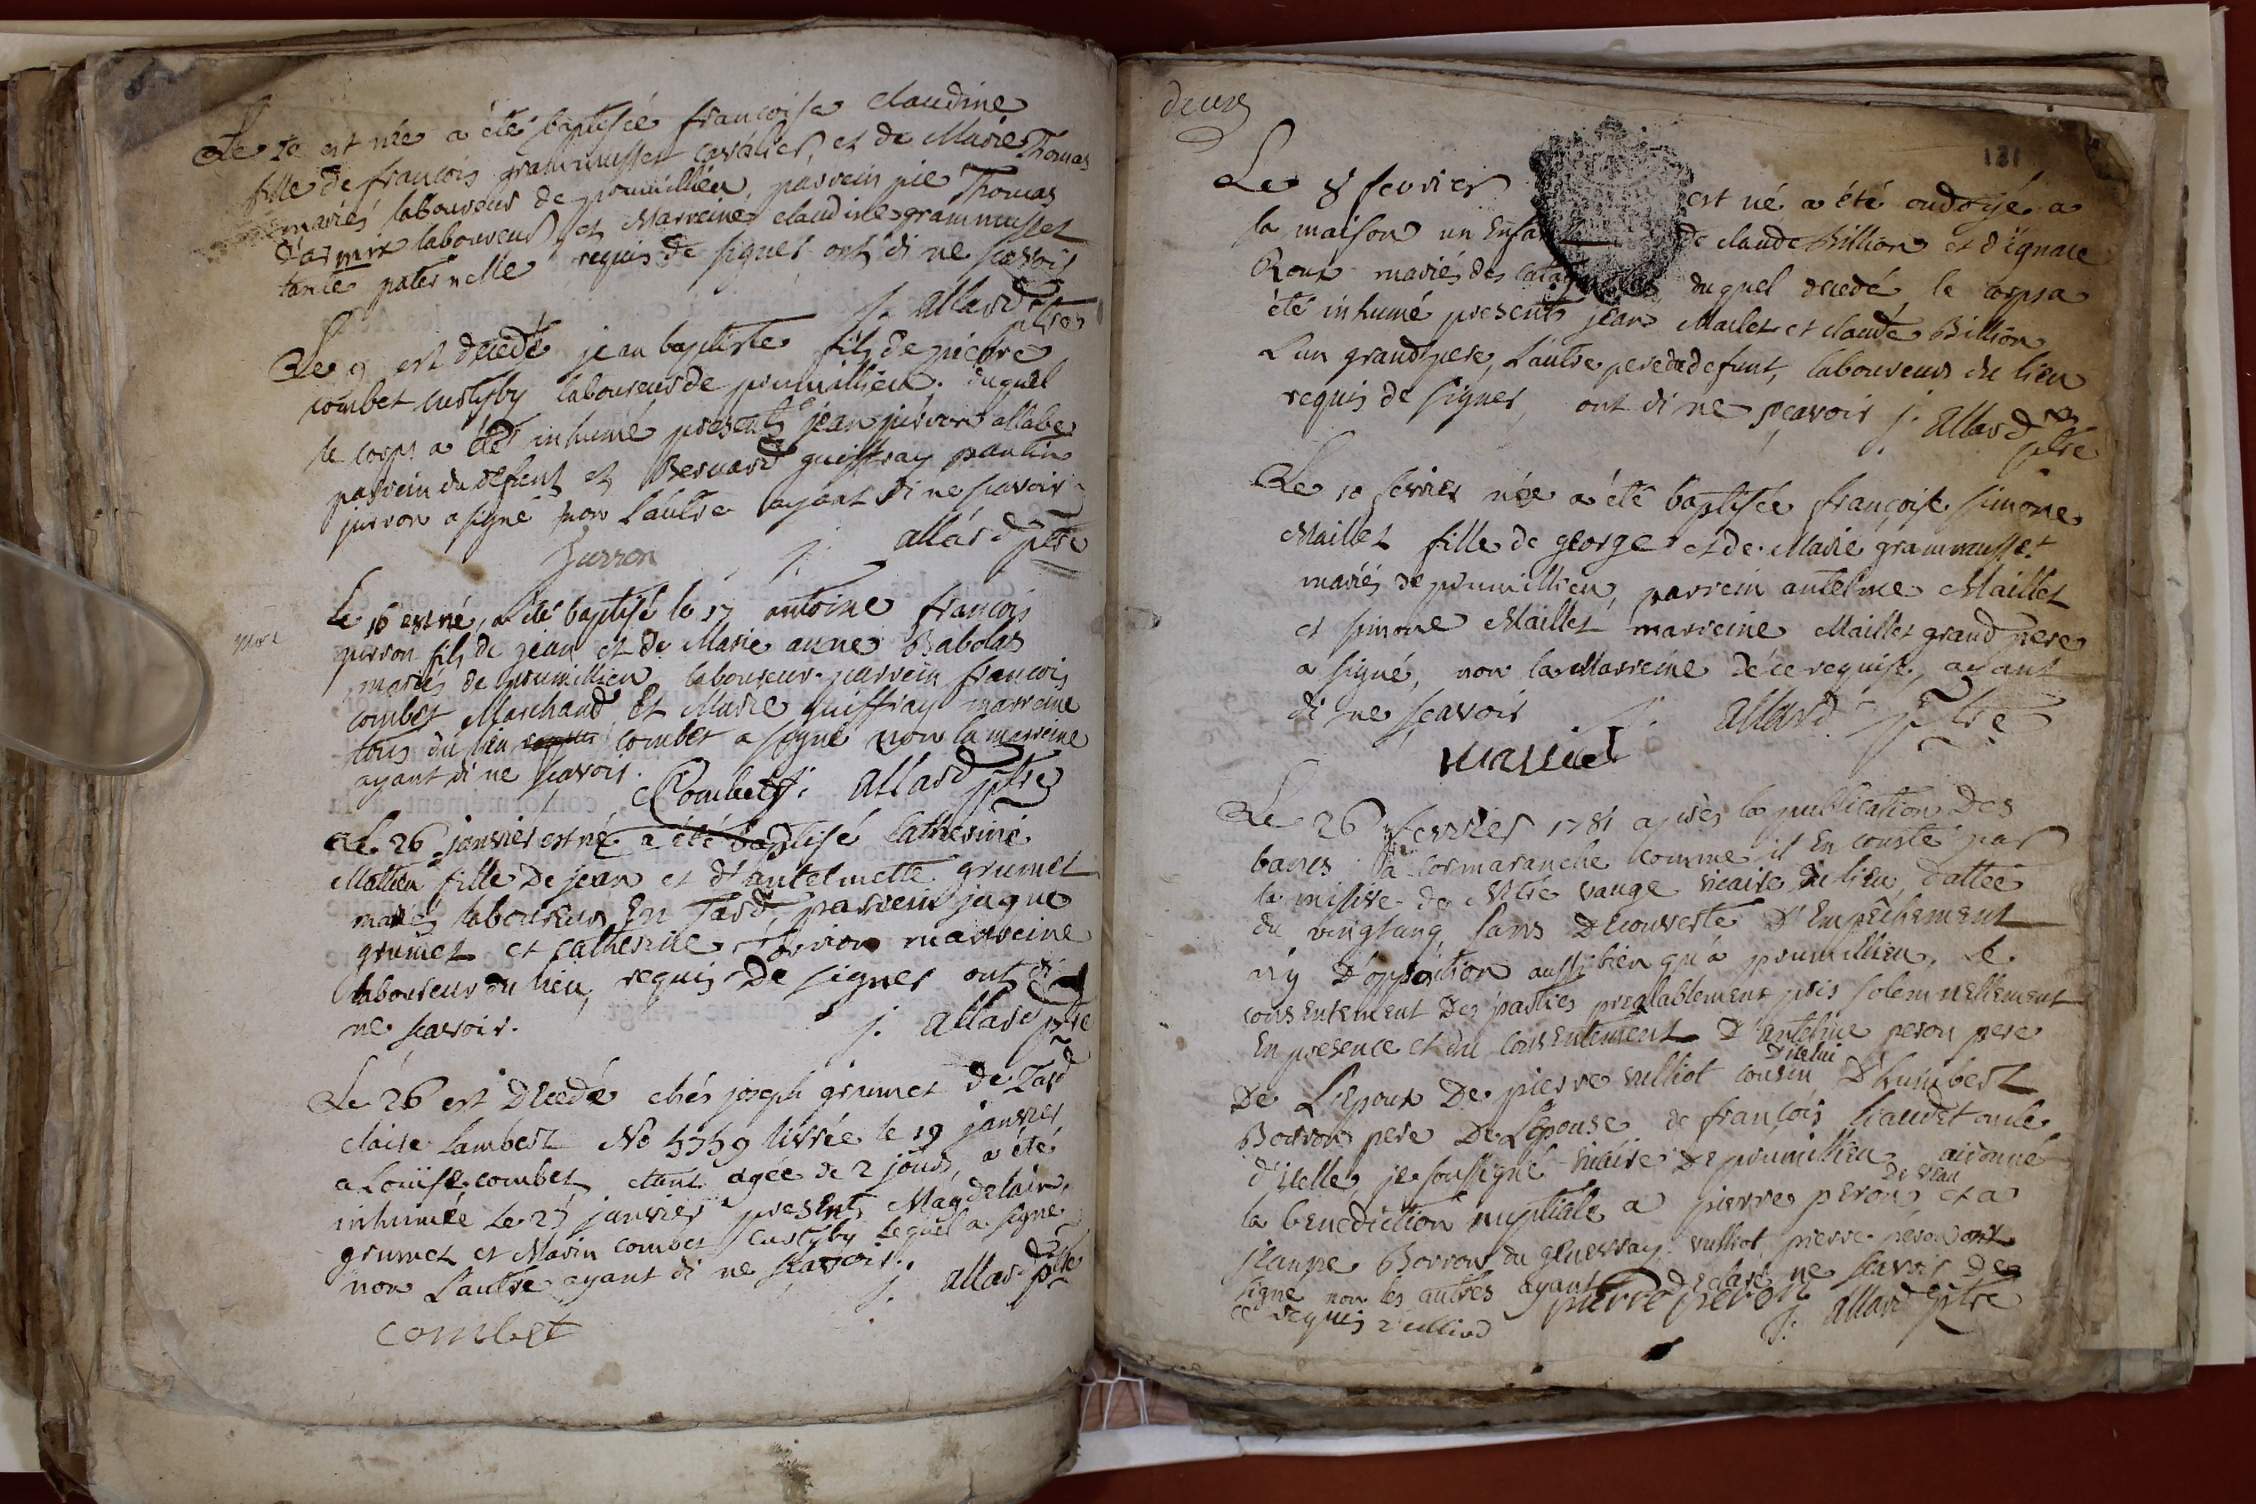 Le 7e est née a été baptisée francoise claudine
fille de francois grammusset cavalier, et de Marie Thomas
mariés laboureurs de prumillieu, parrein pie Thomas
d'armix laboureur et Marreine claudine grammusset
tante paternelle requis de signer ont di ne scavoir
j. allard ptre
Le 9 est décédé jean baptiste fils de pierre
combet custyby laboureur de prumillieu. duquel
le corps a été inhumé presents jean jurron allabe
parrein du defunt et Bernard guiffray pantin
jurron a signé non l'autre ayant di ne scavoir
Jurron j. allard ptre
mort
Le 16 est né, a été baptisé le 17 antoine francois
perron fils de jean et de Marie anne Babolat
mariés de prumillieu laboureur. parrein francois
combet Marchand et Marie guiffray marreine
tous du lieu combet a signé non la marreine
ayant di ne scavoir.
Combet j. allard ptre
Le 26 janvier est né a été baptisé catherine
Mathieu fille de jean et d'antelmette grumet
mariés laboureurs En Tard, parrein jaque
grumet et catherine marreine
laboureur du lieu, requis de signer ont di
ne scavoir. j. allard ptre
Le 26 est décédé chés joseph grumet de Tard
claire Lambert No 5759 livrée le 19 janvier
a Louise combet étant agée de 2 jours, a été
inhumée le 27 janvier presents Magdelain
grumet et Marin combet custyby lequel a signé
non l'autre ayant di ne scavoir.
j. allard ptre
combet
deux
131
Le 8 fevrier est né a été ondoyé a
la maison un Enfant de claude Billion et d'ignace
Roux mariés des duquel décédé, le corps a
été inhumé presents jean Mailet et claude Billion
L'un grandpere, l'autre pere du defunt, laboureurs du lieu
requis de signer, ont di ne scavoir j. allard
ptre
Le 10 fevrier née a été baptisée françoise simone
Maillet fille de george et de Marie grammusset
mariés de prumillieu, parrein antelme Maillet
et simone Maillet marreine Maillet grand pere
a signé, non la Marreine de ce requise, ayant
di ne scavoir j. allard ptre
Maillet
Le 26 fevrier 1781 après la publication des
bancs a cormaranche comme il En conste par
la missive de Mtre vauge vicaire du lieu, dattée
du vingtunq, sans découverte d'Empêchement
n'y d'opposition aussi bien qu'a prumillieu, Le
consentement des parties prealablement pris solemnellement
En presence et du consentement d'antelme peron pere
de L'Epoux de pierre vulliot cousin d'icelui d'humbert
Borron pere de L'Epouse de françois liaudet oncle
d'icelle, je soussigné vicaire de prumillieu ai donné
la benediction nuptiale a pierre peron de vean et a
jeanne Borron du genevray. vulliot, pierre peron ont
signé non les autres ayant declaré ne scavoir de
ce requis vulliod pierre peron j. allard ptre